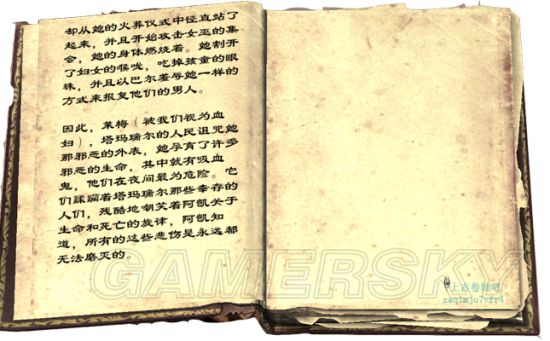 却从她的火葬仪式中径直站了
起来，并且开始攻击女巫的集
会，她的身体燃烧着。她割开
了妇女的喉咙，吃掉孩童的眼
珠，并且以巴尔羞辱她一样的
方式来报复他们的男人。
因此，莱梅（被我们视为血
妇），塔玛瑞尔的人民诅咒她
那邪恶的外表，她孕育了许多
邪恶的生命，其中就有吸血
鬼，他们在夜间最为危险。它
们蹂躏着塔玛瑞尔那些幸存的
人们，残酷地嘲笑着阿凯关于
生命和死亡的旋律，阿凯知
道，所有的这些悲伤是永远都
无法磨灭的。
GAMERSKY
上古卷轴吧
zaq1mju7vfr4